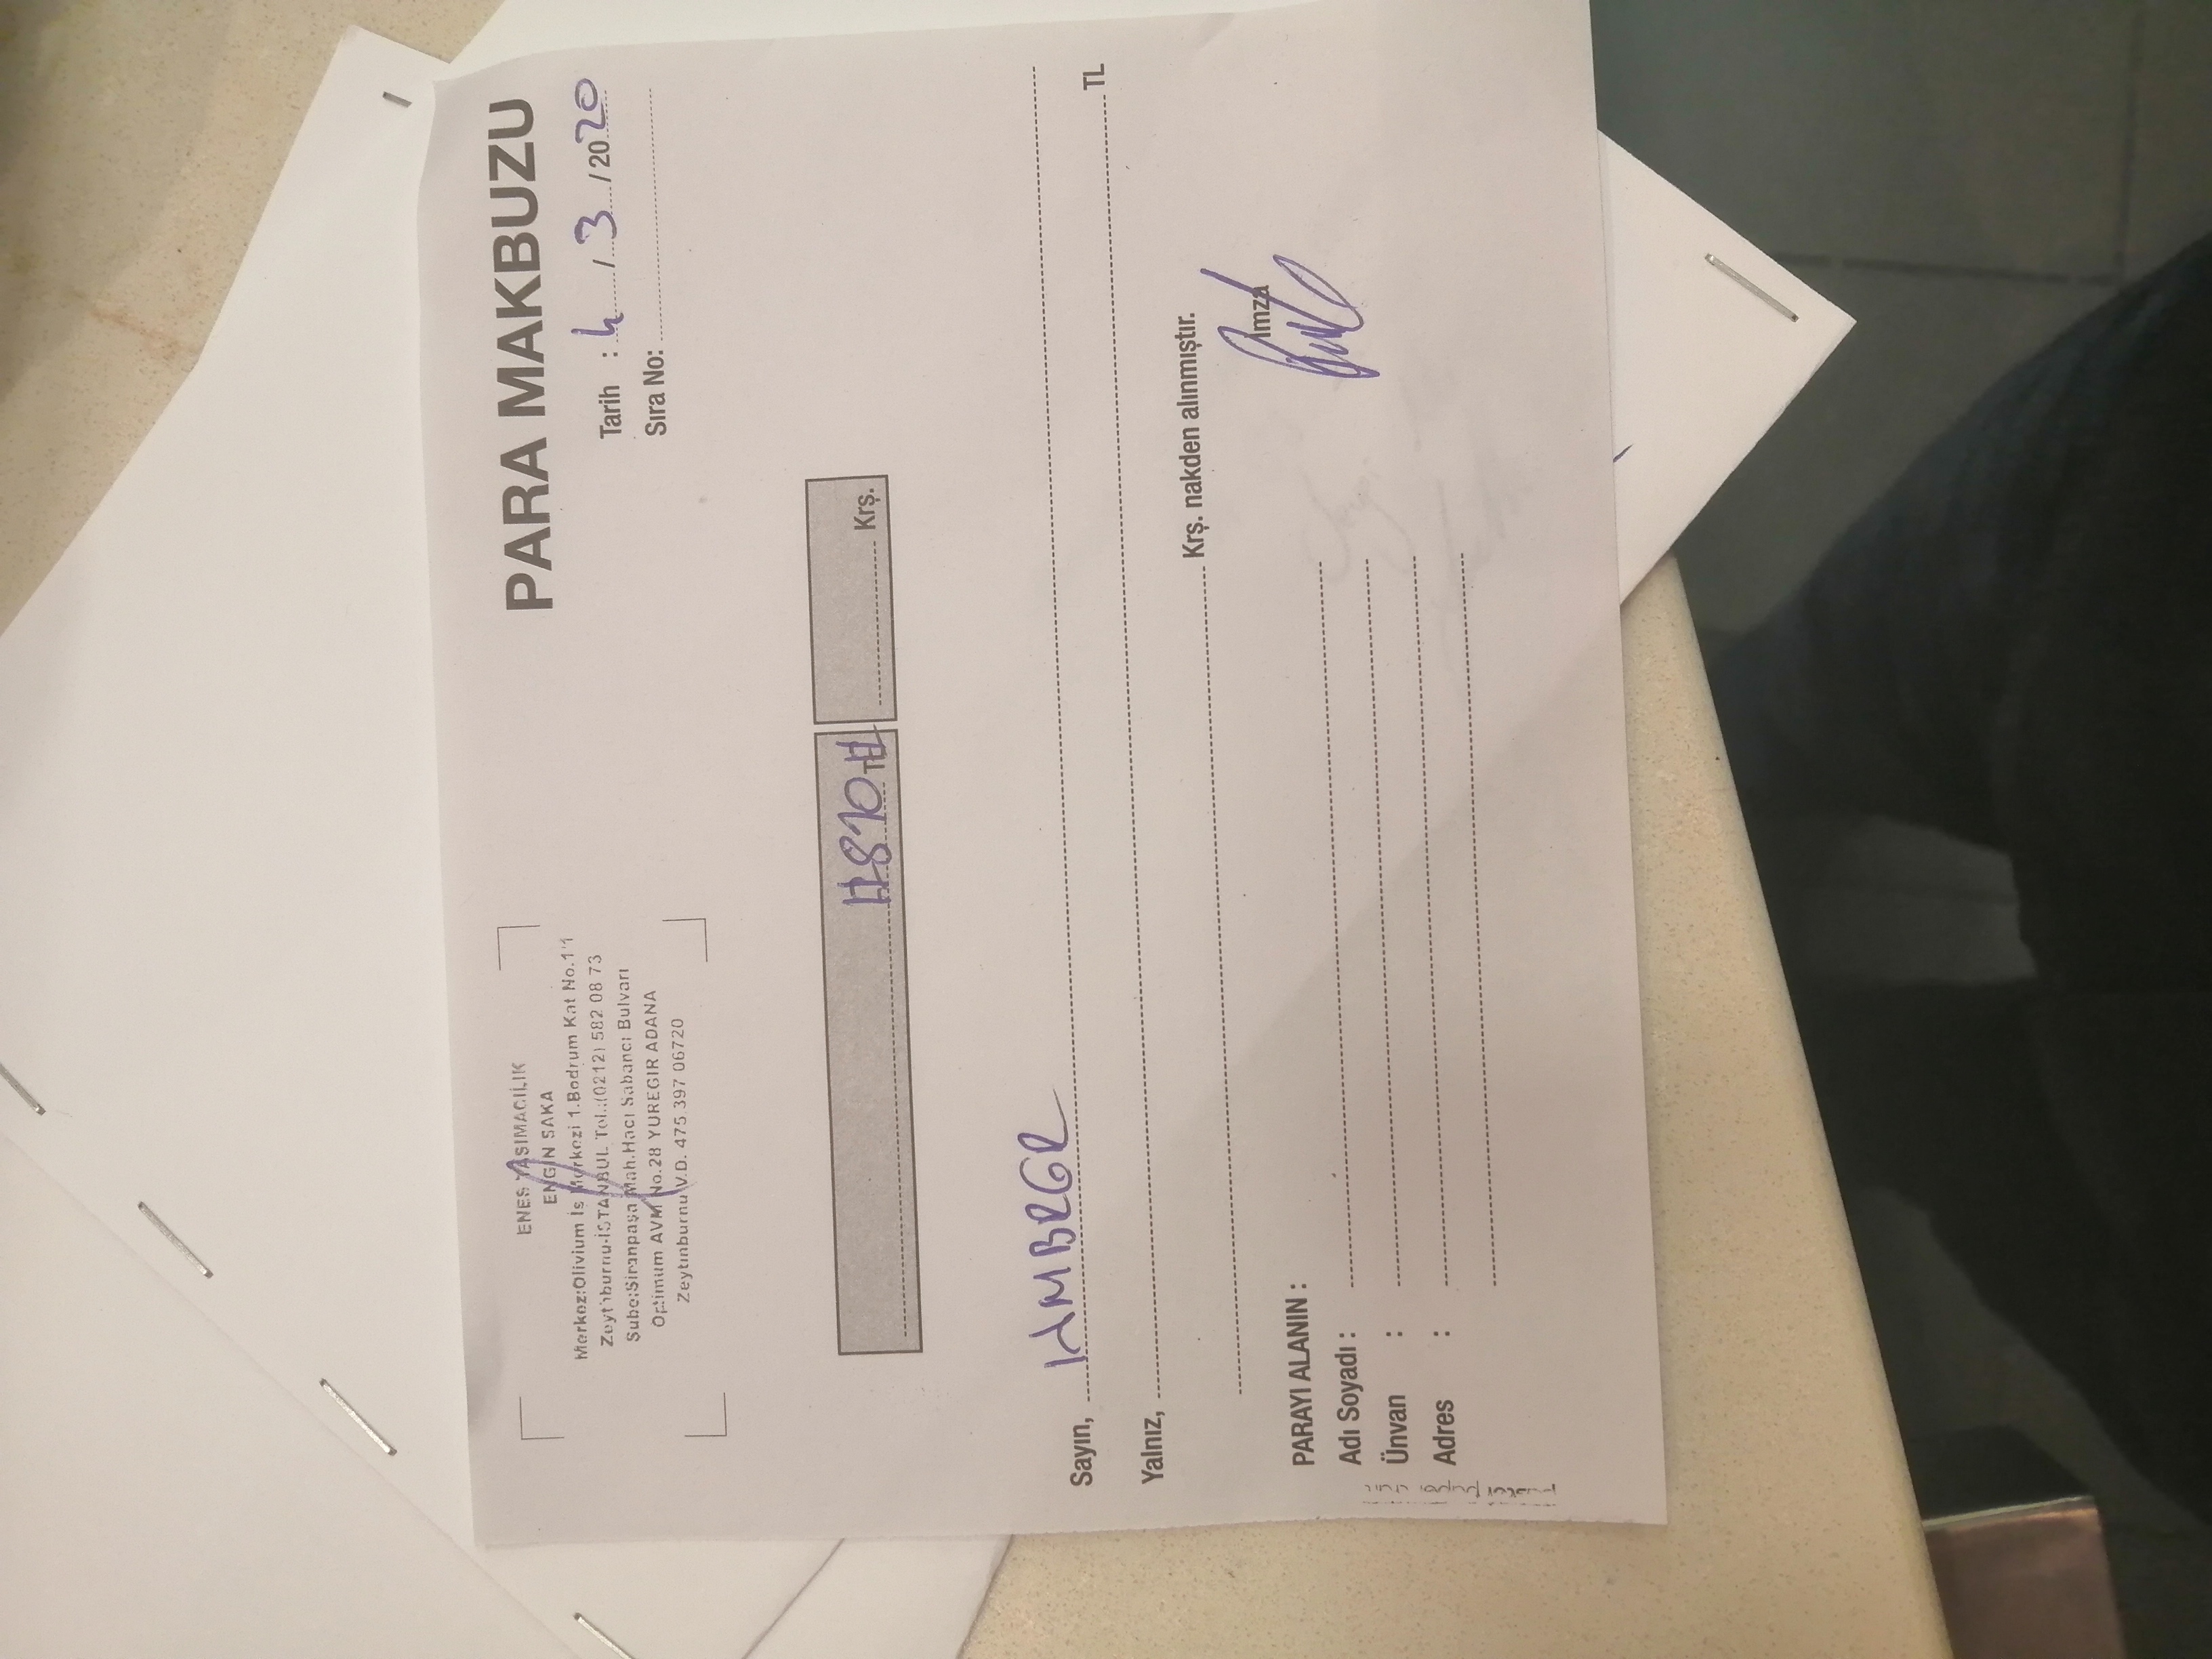 ENES TAŞIMACILIK
ENGİN SAKA
Merkez:Olivium İş Merkezi 1.Bodrum Kat No.11
Zeytinburnu-İSTANBUL Tel.:(0212) 582 08 73
Şube:Sinanpaşa Mah.Hacı Sabancı Bulvarı
Optimum AVM No.28 YUREGIR ADANA
Zeytinburnu V.D. 475 397 06720
PARA MAKBUZU
Tarih : 4 / 3 / 2020
Sıra No:
#810# TL Krş.
Sayın,
Yalnız, TL
Krş. nakden alınmıştır.
İmza
PARAYI ALANIN :
Adı Soyadı :
Ünvan :
Adres :